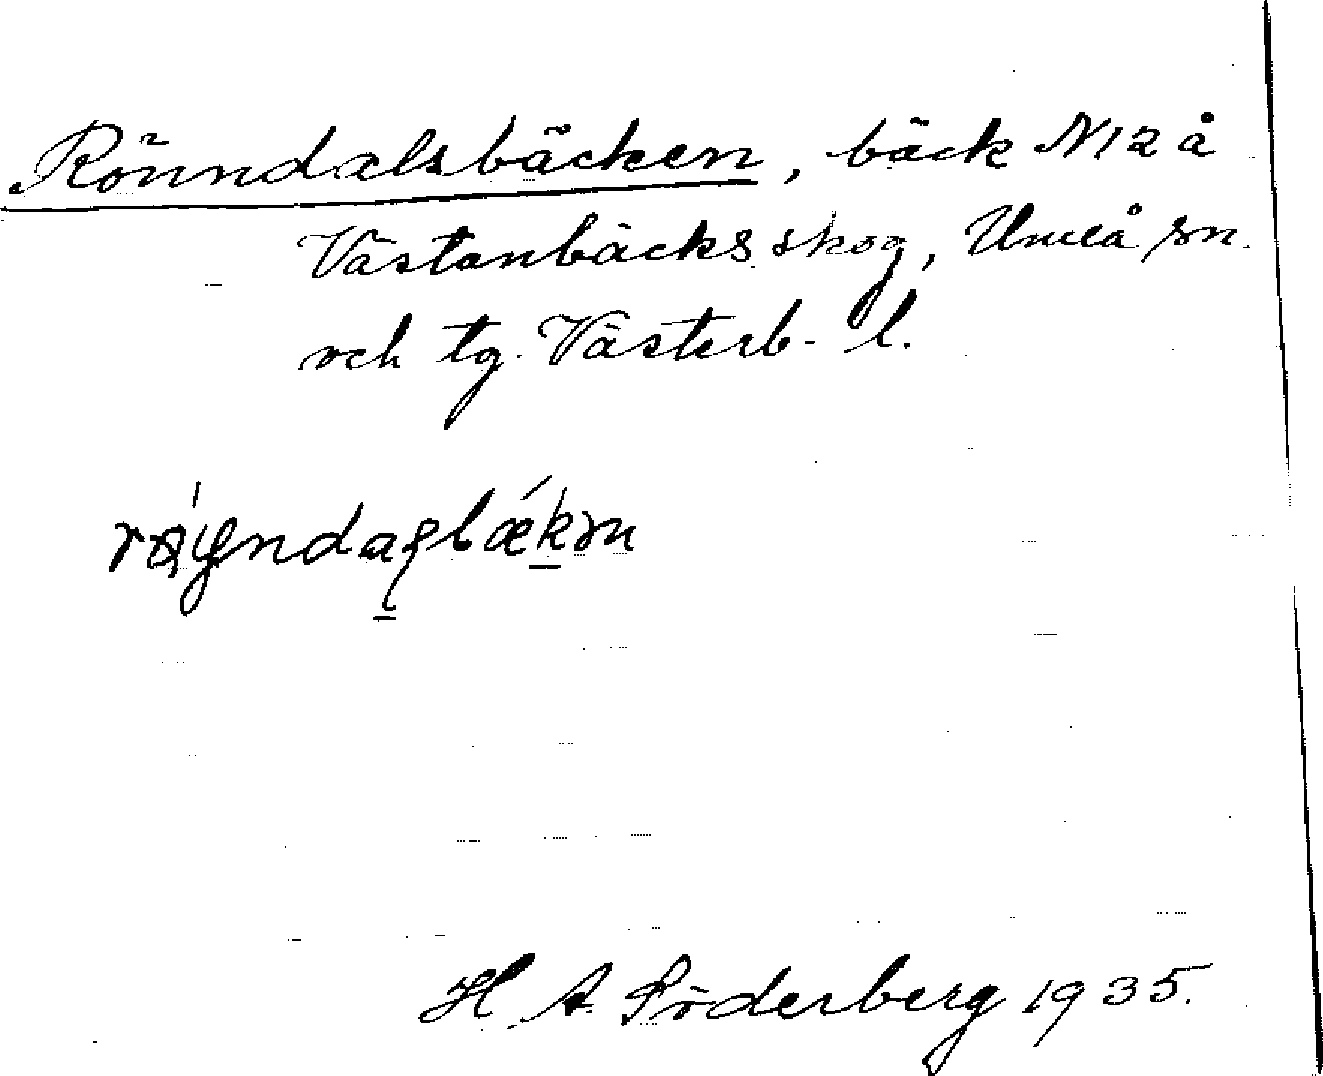 Rönndalsbäcken, bäck N12 å
Västanbäcks skog, Umeå sn.
och tg. Västerb. l.
H. A. Söderberg 1935.